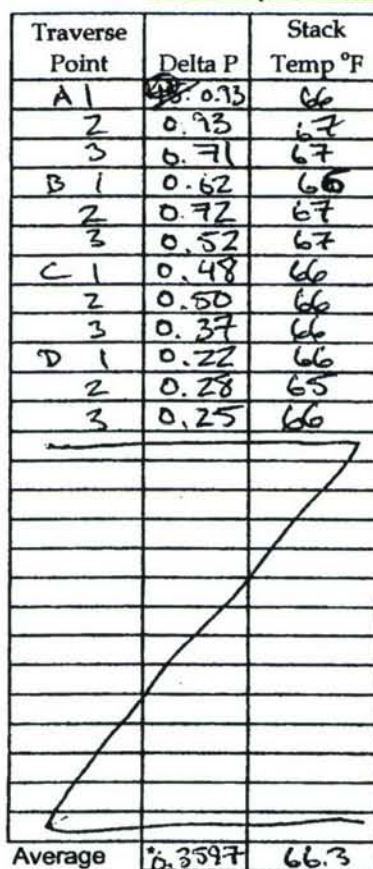 Traverse Point Delta P Stack Temp °F
A 1 0.93 66
2 0.93 67
3 0.71 67
B 1 0.62 66
2 0.72 67
3 0.52 67
C 1 0.48 66
2 0.50 66
3 0.37 66
D 1 0.22 66
2 0.28 65
3 0.25 66
Average *0.3597 66.3